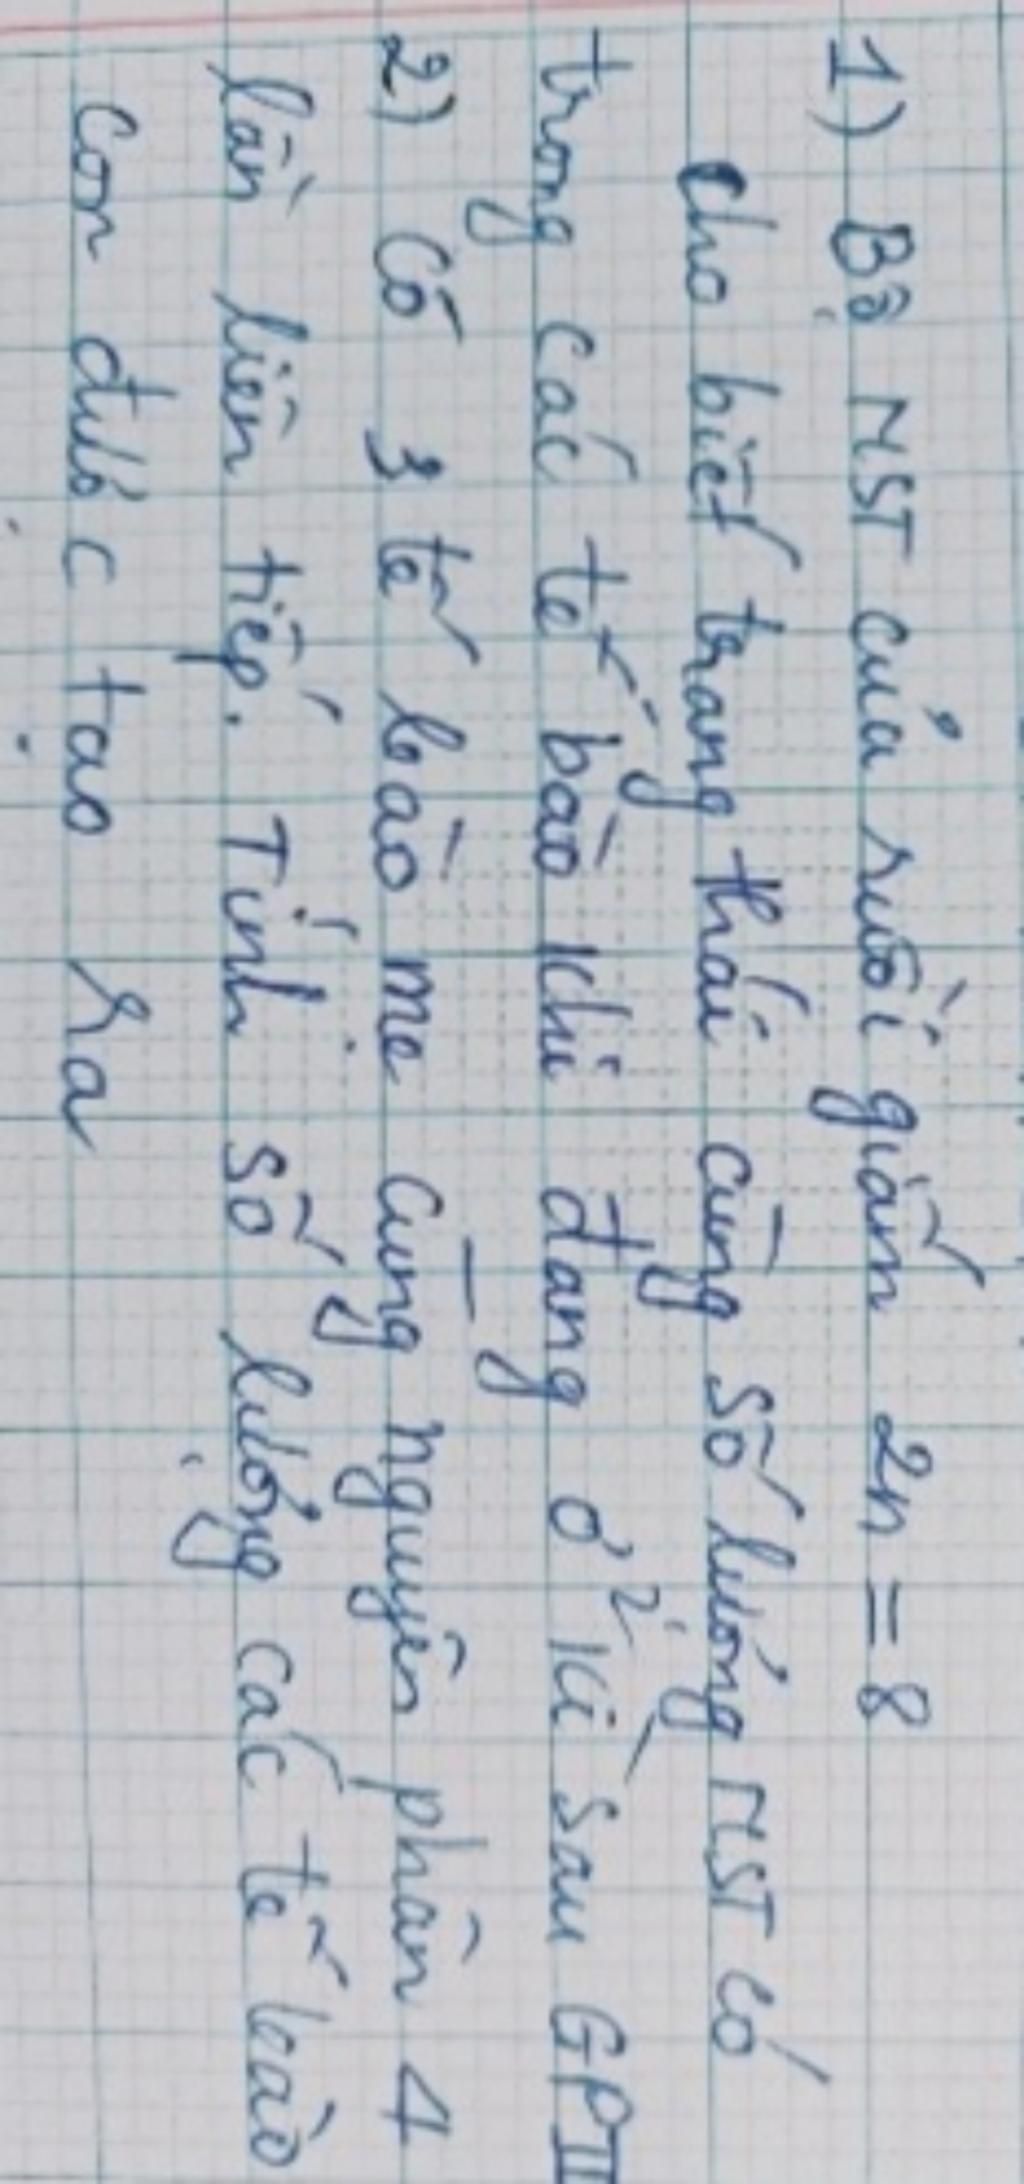 1) Bộ NST của ruồi giấm 2n = 8
Cho biết trạng thái cùng số lượng NST có
trong các tế bào khi đang ở kì sau GPII
2) Có 3 tế bào mẹ cùng nguyên phân 4
lần liên tiếp. Tính số lượng các tế bào
con được tạo ra